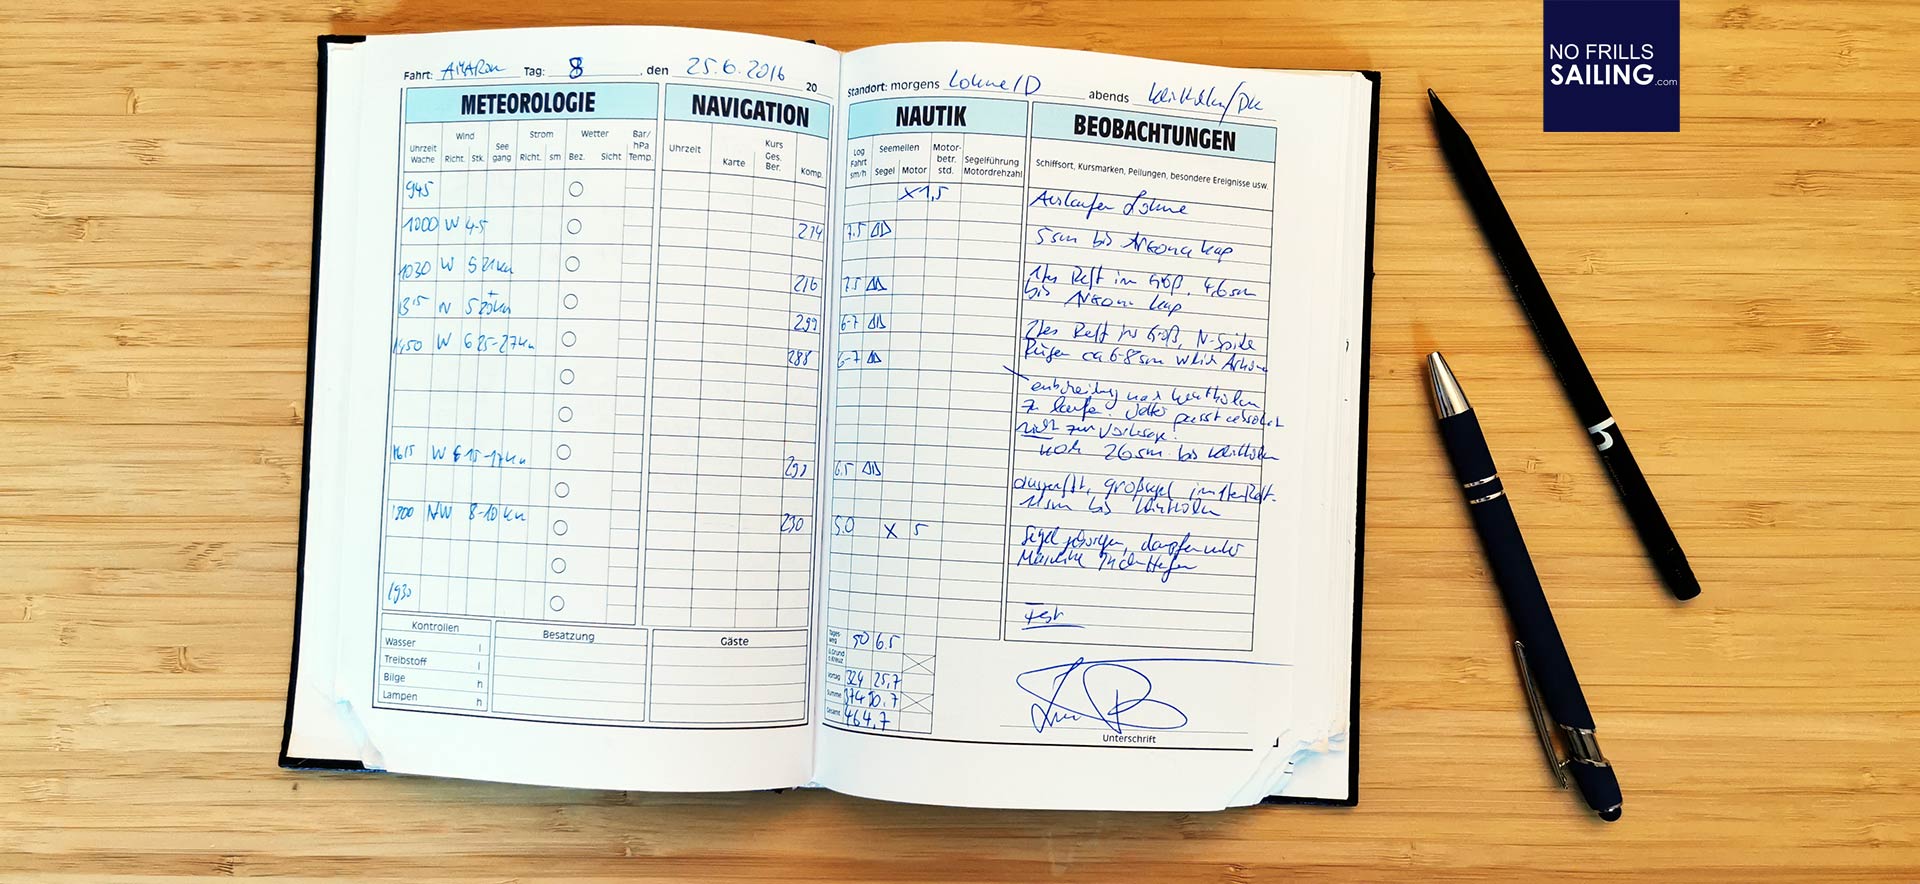 NO FRILLS
SAILING.com
Fahrt: AMARON Tag: 8 , den 25.6.2016 20
METEOROLOGIE
NAVIGATION
Uhrzeit Wache
Wind
Richt. Stk.
See gang
Strom
Richt. sm
Wetter
Bez. Sicht
Bar/ hPa Temp.
Uhrzeit
Karte
Kurs Ges. Ber.
Komp.
945
1000 W 4-5 274
1030 W 5 21kn 276
1315 N 5 299
1450 W 6 25-27kn 288
1615 W 6 15-17kn 293
1800 NW 8-10 kn 230
1930
Kontrollen
Wasser l
Treibstoff l
Bilge h
Lampen h
Besatzung
Gäste
Standort: morgens Lohme/D abends
NAUTIK
BEOBACHTUNGEN
Log Fahrt sm/h
Seemeilen
Segel Motor
Motor- betr. std.
Segelführung Motordrehzahl
Schiffsort, Kursmarken, Peilungen, besondere Ereignisse usw.
X 1,5 Auslaufen Lohme
7.5 5sm bis Arkona Kap
7.5 1tes Reff im Groß, 4,6 sm
bis Arkona Kap
6-7 2tes Reff ins Groß, N-Spitze
6-7 Rügen ca 6-8sm Arkona
zu laufen.
nicht zur Vorhersage.
noch 26sm bis
6.5 ausgerefft, Großsegel im 1ten Reff.
11sm bis
5.0 X 5 Segel geborgen, dampfen unter
Maschine in den Hafen
Fest
Tages- weg 50 6.5
ü.Grund o.Kreuz
Vortag 324 25,7
Summe 374
Gesamt 464,7
Unterschrift